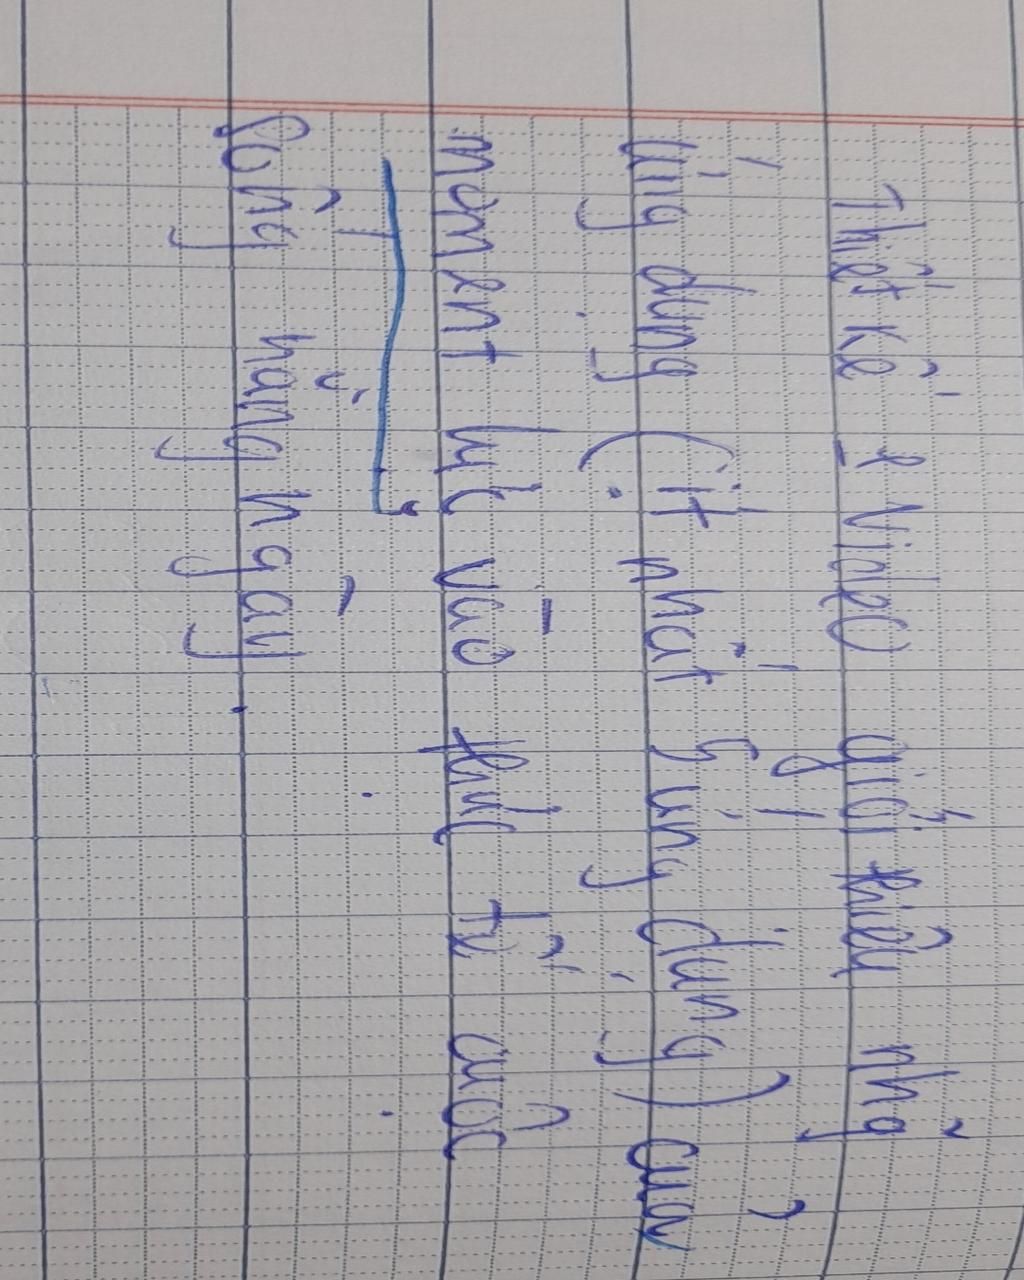 Thiết kế 1 Video giới thiệu nhỏ
ứng dụng (ít nhất 5 ứng dụng) của
moment lực vào thực tế cuộc
sống hằng ngày.